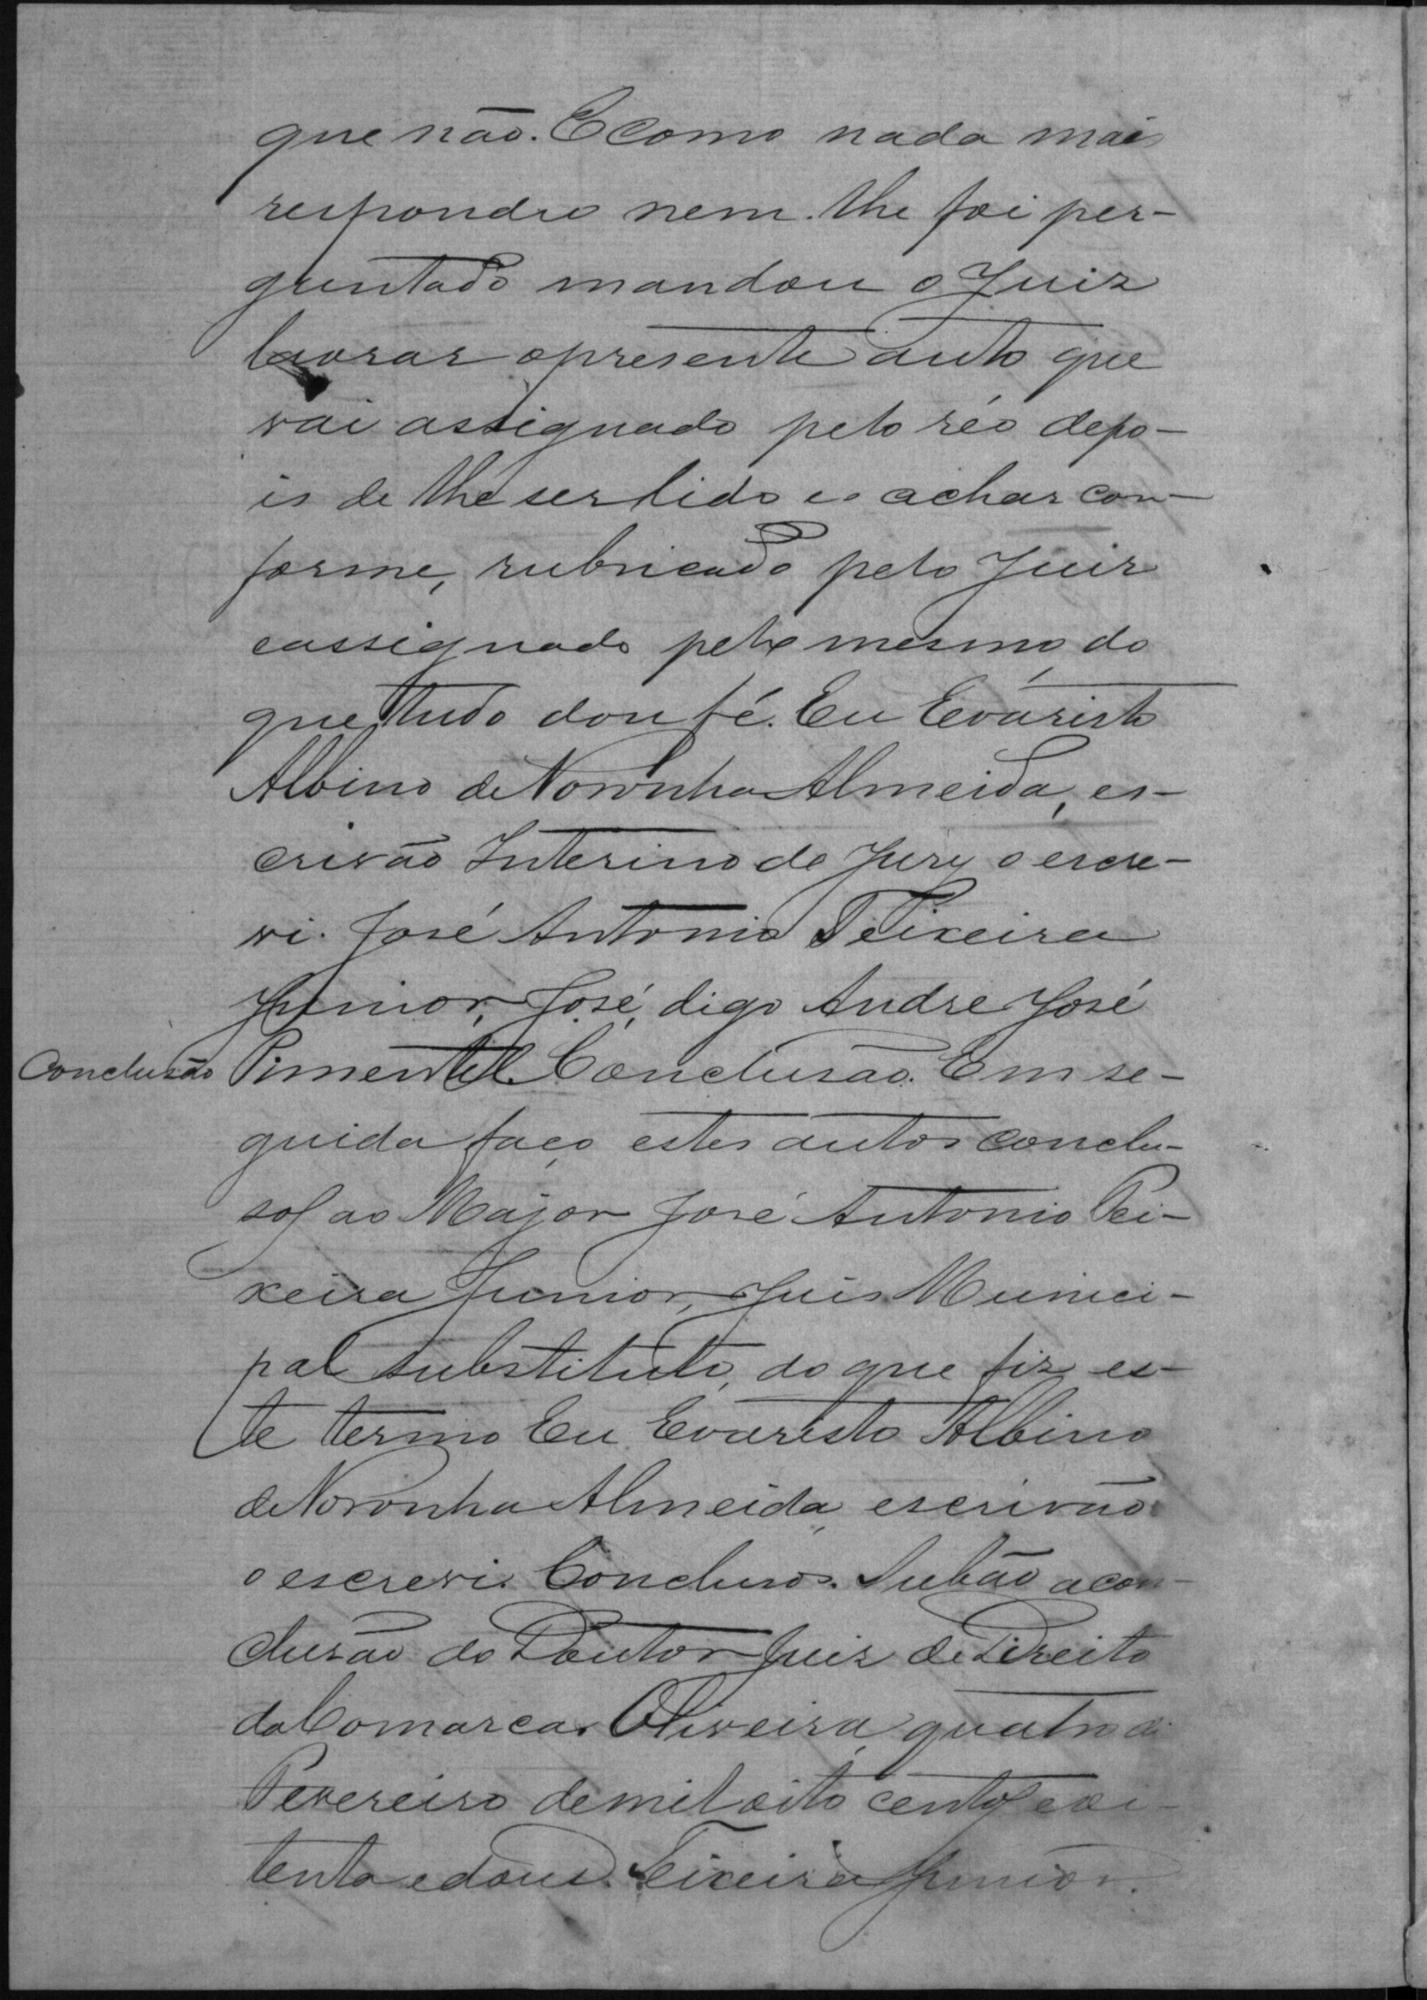 que não. E como nada mais
respondeo nem lhe foi per-
guntado mandou o Juiz
lavrar o presente auto que
vai assignado pelo réo depo-
is de lhe ser lido e o achar con-
forme, rubricado pelo Juiz
e assignado pelo mesmo, do
que tudo dou fé. Eu Evaristo
Albino de Noronha Almeida, es-
crivão Interino do Jury o escre-
vi. José Antonio Teixeira
Junior, José, digo Andre José
Conclusão Pimentel. Conclusão. Em se-
guida faço estes autos conclu-
sos ao Major José Antonio Tei-
xeira Junior, Juis Munici-
pal substituto, do que fiz es-
te termo Eu Evaristo Albino
de Noronha Almeida, escrivão
o escrevi. Conclusos. Subão a con-
clusão do Doutor Juiz de Direito
da Comarca. Oliveira, quatro de
Fevereiro de mil oito centos e oi-
tenta e dous. Teixeira Junior.